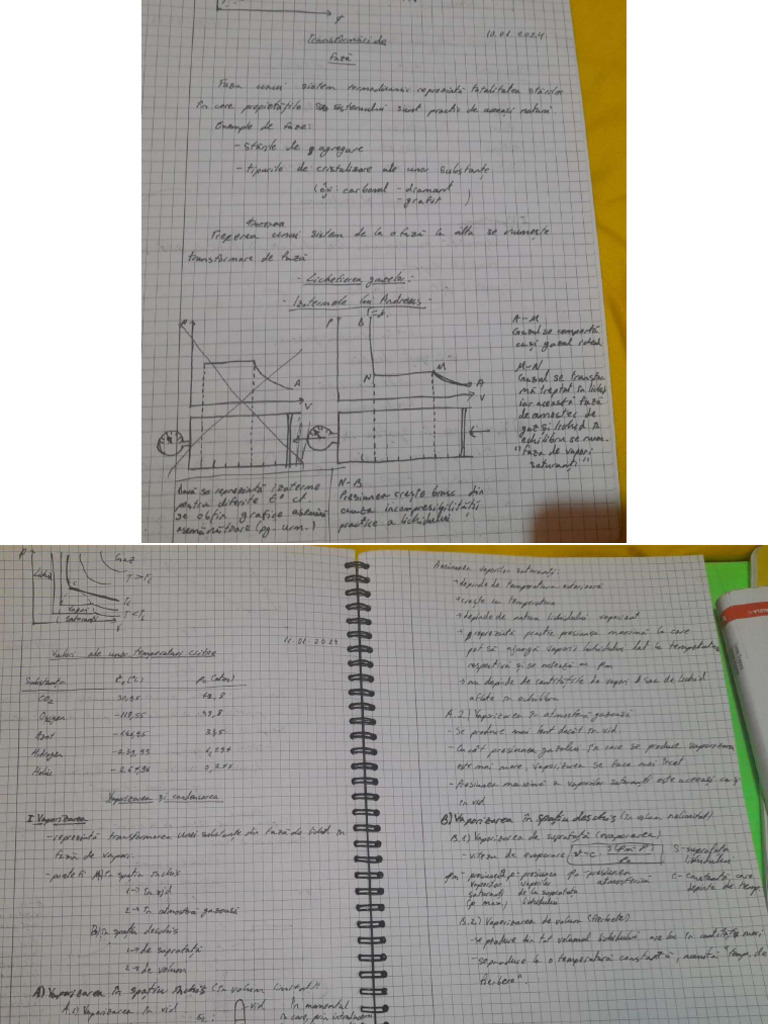 T
Transformări de
fază
10.01.2024
Faza unui sistem termodinamic reprezintă totalitatea stărilor
în care proprietățile sistemului sunt practic de aceeași natură.
Exemple de faze:
- stările de agregare
- tipurile de cristalizare ale unor substanțe
( carbonul - diamant )
- grafit
Trecerea unui sistem de la o fază la alta se numește
transformare de fază
- Lichefierea gazelor -
- Izotermele lui Andrews -
P
A
V
P
B
N
M
A
V
A - M
Gazul se comportă
ca și gazul ideal
M - N
Gazul se transfor
mă treptat în lichid
iar această fază
de amestec de
gaz și lichid în
echilibru se num.
"faza de vapori
saturanți"
Dacă se reprezintă izoterme
pentru diferite t° ct.
se obțin grafice
asemănătoare (pg. urm.)
N - B
Presiunea crește brusc din
cauza incompresibilității
practice a lichidului
P
Lichid
Gaz
T > Tc
Tc
T < Tc
Vapori
saturanți
V
11.01.2024
Valori ale unor temperaturi critice
Substanța
CO2
Oxigen
Azot
Hidrogen
Heliu
Vaporizarea și condensarea
I Vaporizarea
- reprezintă transformarea unei substanțe din faza de lichid în
fază de vapori
A) În spațiu închis
1 -> în vid
2 -> în atmosferă gazoasă
B) În spațiu deschis
1 -> de suprafață
2 -> de volum
A) Vaporizarea în spațiu închis (în volum limitat)
A.1) Vaporizarea în vid
vid
În momentul
în care, prin introducerea
Presiunea vaporilor saturanți:
- depinde de temperatura
- crește cu temperatura
- depinde de natura lichidului vaporizat
- reprezintă practic presiunea maximă la care
pot să ajungă vaporii lichidului dat la temperatura
respectivă și se notează cu pm
- nu depinde de cantitățile de vapori sau de lichid
aflate în echilibru
A.2) Vaporizarea în atmosferă gazoasă
- Se produce mai lent decât în vid
- Cu cât presiunea gazului în care se produce vaporizarea
este mai mare, vaporizarea se face mai încet
- Presiunea maximă a vaporilor saturanți este aceeași ca și
în vid
B) Vaporizarea în spațiu deschis (în volum nelimitat)
B.1) Vaporizarea de suprafață (evaporarea)
- viteza de evaporare
S - suprafața
lichidului
pm - presiunea
vaporilor
saturanți
(p max.)
p - presiunea
vaporilor
de la suprafața
lichidului
p0 - presiunea
atmosferică
C - constantă, care
depinde de temp.
B.2) Vaporizarea de volum (fierbere)
- se produce în tot volumul lichidului
- se produce la o temperatură constantă, numită "temp. de
fierbere".